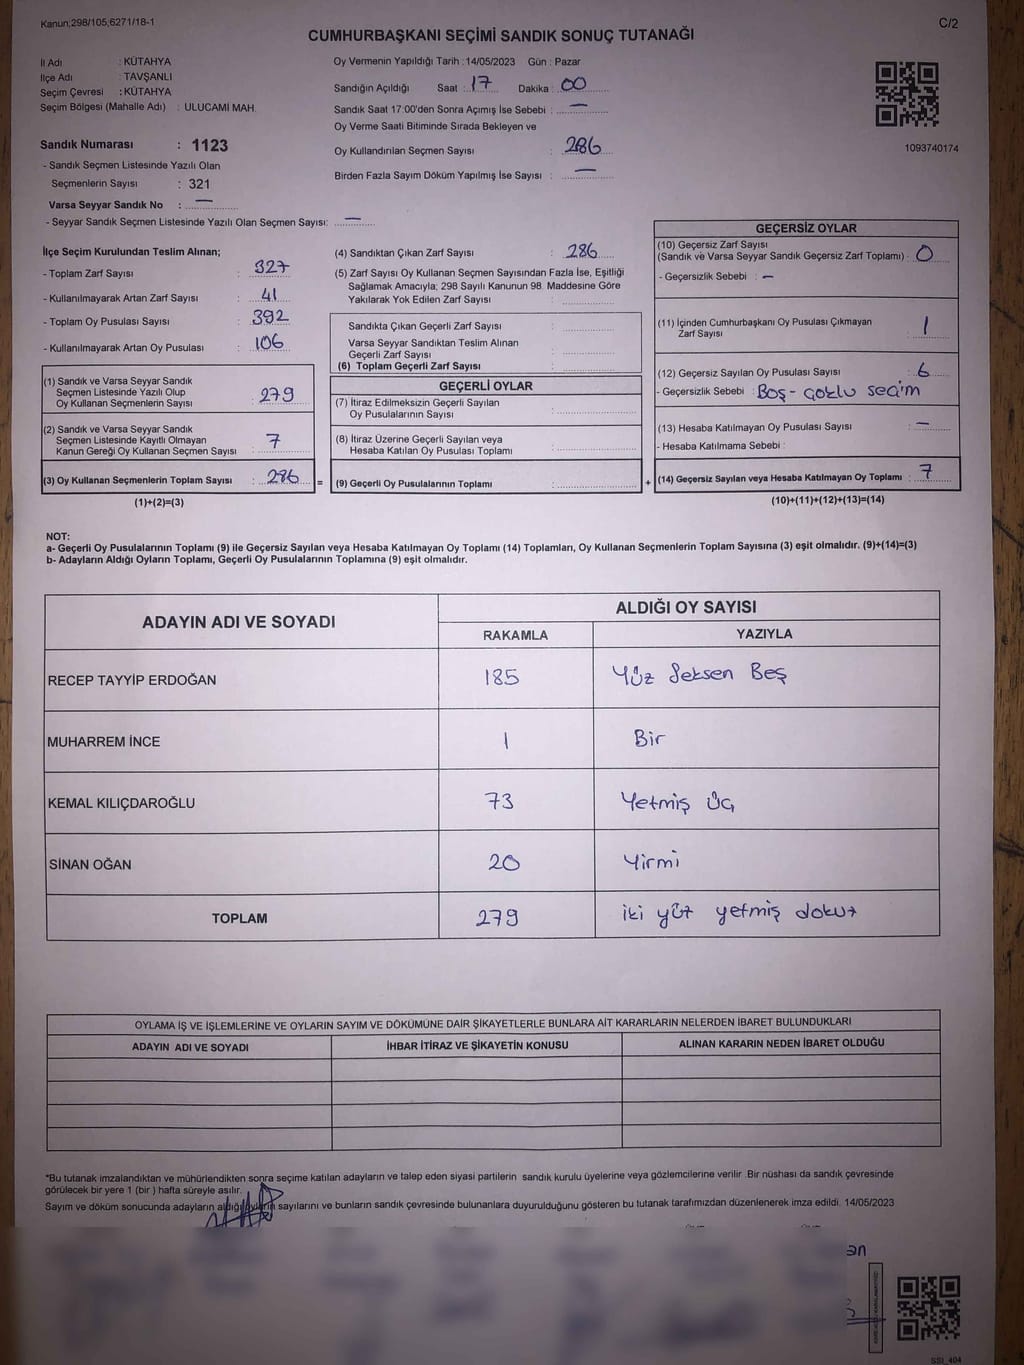 Kanun;298/105,6271/18-1
C/2
CUMHURBAŞKANI SEÇİMİ SANDIK SONUÇ TUTANAĞI
İl Adı : KÜTAHYA
İlçe Adı : TAVŞANLI
Seçim Çevresi : KÜTAHYA
Seçim Bölgesi (Mahalle Adı) : ULUCAMİ MAH.
Sandık Numarası : 1123
- Sandık Seçmen Listesinde Yazılı Olan
Seçmenlerin Sayısı : 321
Varsa Seyyar Sandık No : —
- Seyyar Sandık Seçmen Listesinde Yazılı Olan Seçmen Sayısı: —
Oy Vermenin Yapıldığı Tarih :14/05/2023 Gün : Pazar
Sandığın Açıldığı Saat : 17 Dakika : 00
Sandık Saat 17:00'den Sonra Açımış İse Sebebi : —
Oy Verme Saati Bitiminde Sırada Bekleyen ve
Oy Kullandırılan Seçmen Sayısı : 286
Birden Fazla Sayım Döküm Yapılmış İse Sayısı : —
1093740174
İlçe Seçim Kurulundan Teslim Alınan;
- Toplam Zarf Sayısı : 327
- Kullanılmayarak Artan Zarf Sayısı : 41
- Toplam Oy Pusulası Sayısı : 392
- Kullanılmayarak Artan Oy Pusulası : 106
(1) Sandık ve Varsa Seyyar Sandık
Seçmen Listesinde Yazılı Olup
Oy Kullanan Seçmenlerin Sayısı : 279
(2) Sandık ve Varsa Seyyar Sandık
Seçmen Listesinde Kayıtlı Olmayan
Kanun Gereği Oy Kullanan Seçmen Sayısı : 7
(3) Oy Kullanan Seçmenlerin Toplam Sayısı : 286 =
(1)+(2)=(3)
(4) Sandıktan Çıkan Zarf Sayısı : 286
(5) Zarf Sayısı Oy Kullanan Seçmen Sayısından Fazla İse, Eşitliği
Sağlamak Amacıyla; 298 Sayılı Kanunun 98. Maddesine Göre
Yakılarak Yok Edilen Zarf Sayısı :
Sandıkta Çıkan Geçerli Zarf Sayısı :
Varsa Seyyar Sandıktan Teslim Alınan
Geçerli Zarf Sayısı :
(6) Toplam Geçerli Zarf Sayısı :
GEÇERLİ OYLAR
(7) İtiraz Edilmeksizin Geçerli Sayılan
Oy Pusulalarının Sayısı :
(8) İtiraz Üzerine Geçerli Sayılan veya
Hesaba Katılan Oy Pusulası Toplamı :
(9) Geçerli Oy Pusulalarının Toplamı : +
GEÇERSİZ OYLAR
(10) Geçersiz Zarf Sayısı
(Sandık ve Varsa Seyyar Sandık Geçersiz Zarf Toplamı) : 0
- Geçersizlik Sebebi : —
(11) İçinden Cumhurbaşkanı Oy Pusulası Çıkmayan
Zarf Sayısı : 1
(12) Geçersiz Sayılan Oy Pusulası Sayısı : 6
- Geçersizlik Sebebi : Boş - çoklu seçim
(13) Hesaba Katılmayan Oy Pusulası Sayısı : —
- Hesaba Katılmama Sebebi :
(14) Geçersiz Sayılan veya Hesaba Katılmayan Oy Toplamı : 7
(10)+(11)+(12)+(13)=(14)
NOT:
a- Geçerli Oy Pusulalarının Toplamı (9) ile Geçersiz Sayılan veya Hesaba Katılmayan Oy Toplamı (14) Toplamları, Oy Kullanan Seçmenlerin Toplam Sayısına (3) eşit olmalıdır. (9)+(14)=(3)
b- Adayların Aldığı Oyların Toplamı, Geçerli Oy Pusulalarının Toplamına (9) eşit olmalıdır.
ADAYIN ADI VE SOYADI
ALDIĞI OY SAYISI
RAKAMLA YAZIYLA
RECEP TAYYİP ERDOĞAN 185 Yüz Seksen Beş
MUHARREM İNCE 1 Bir
KEMAL KILIÇDAROĞLU 73 Yetmiş Üç
SİNAN OĞAN 20 Yirmi
TOPLAM 279 iki yüz yetmiş dokuz
OYLAMA İŞ VE İŞLEMLERİNE VE OYLARIN SAYIM VE DÖKÜMÜNE DAİR ŞİKAYETLERLE BUNLARA AİT KARARLARIN NELERDEN İBARET BULUNDUKLARI
ADAYIN ADI VE SOYADI İHBAR İTİRAZ VE ŞİKAYETİN KONUSU ALINAN KARARIN NEDEN İBARET OLDUĞU
*Bu tutanak imzalandıktan ve mühürlendikten sonra seçime katılan adayların ve talep eden siyasi partilerin sandık kurulu üyelerine veya gözlemcilerine verilir. Bir nüshası da sandık çevresinde
görülecek bir yere 1 (bir ) hafta süreyle asılır.
Sayım ve döküm sonucunda adayların aldığı oyların sayılarını ve bunların sandık çevresinde bulunanlara duyurulduğunu gösteren bu tutanak tarafımızdan düzenlenerek imza edildi. 14/05/2023
SSI_404